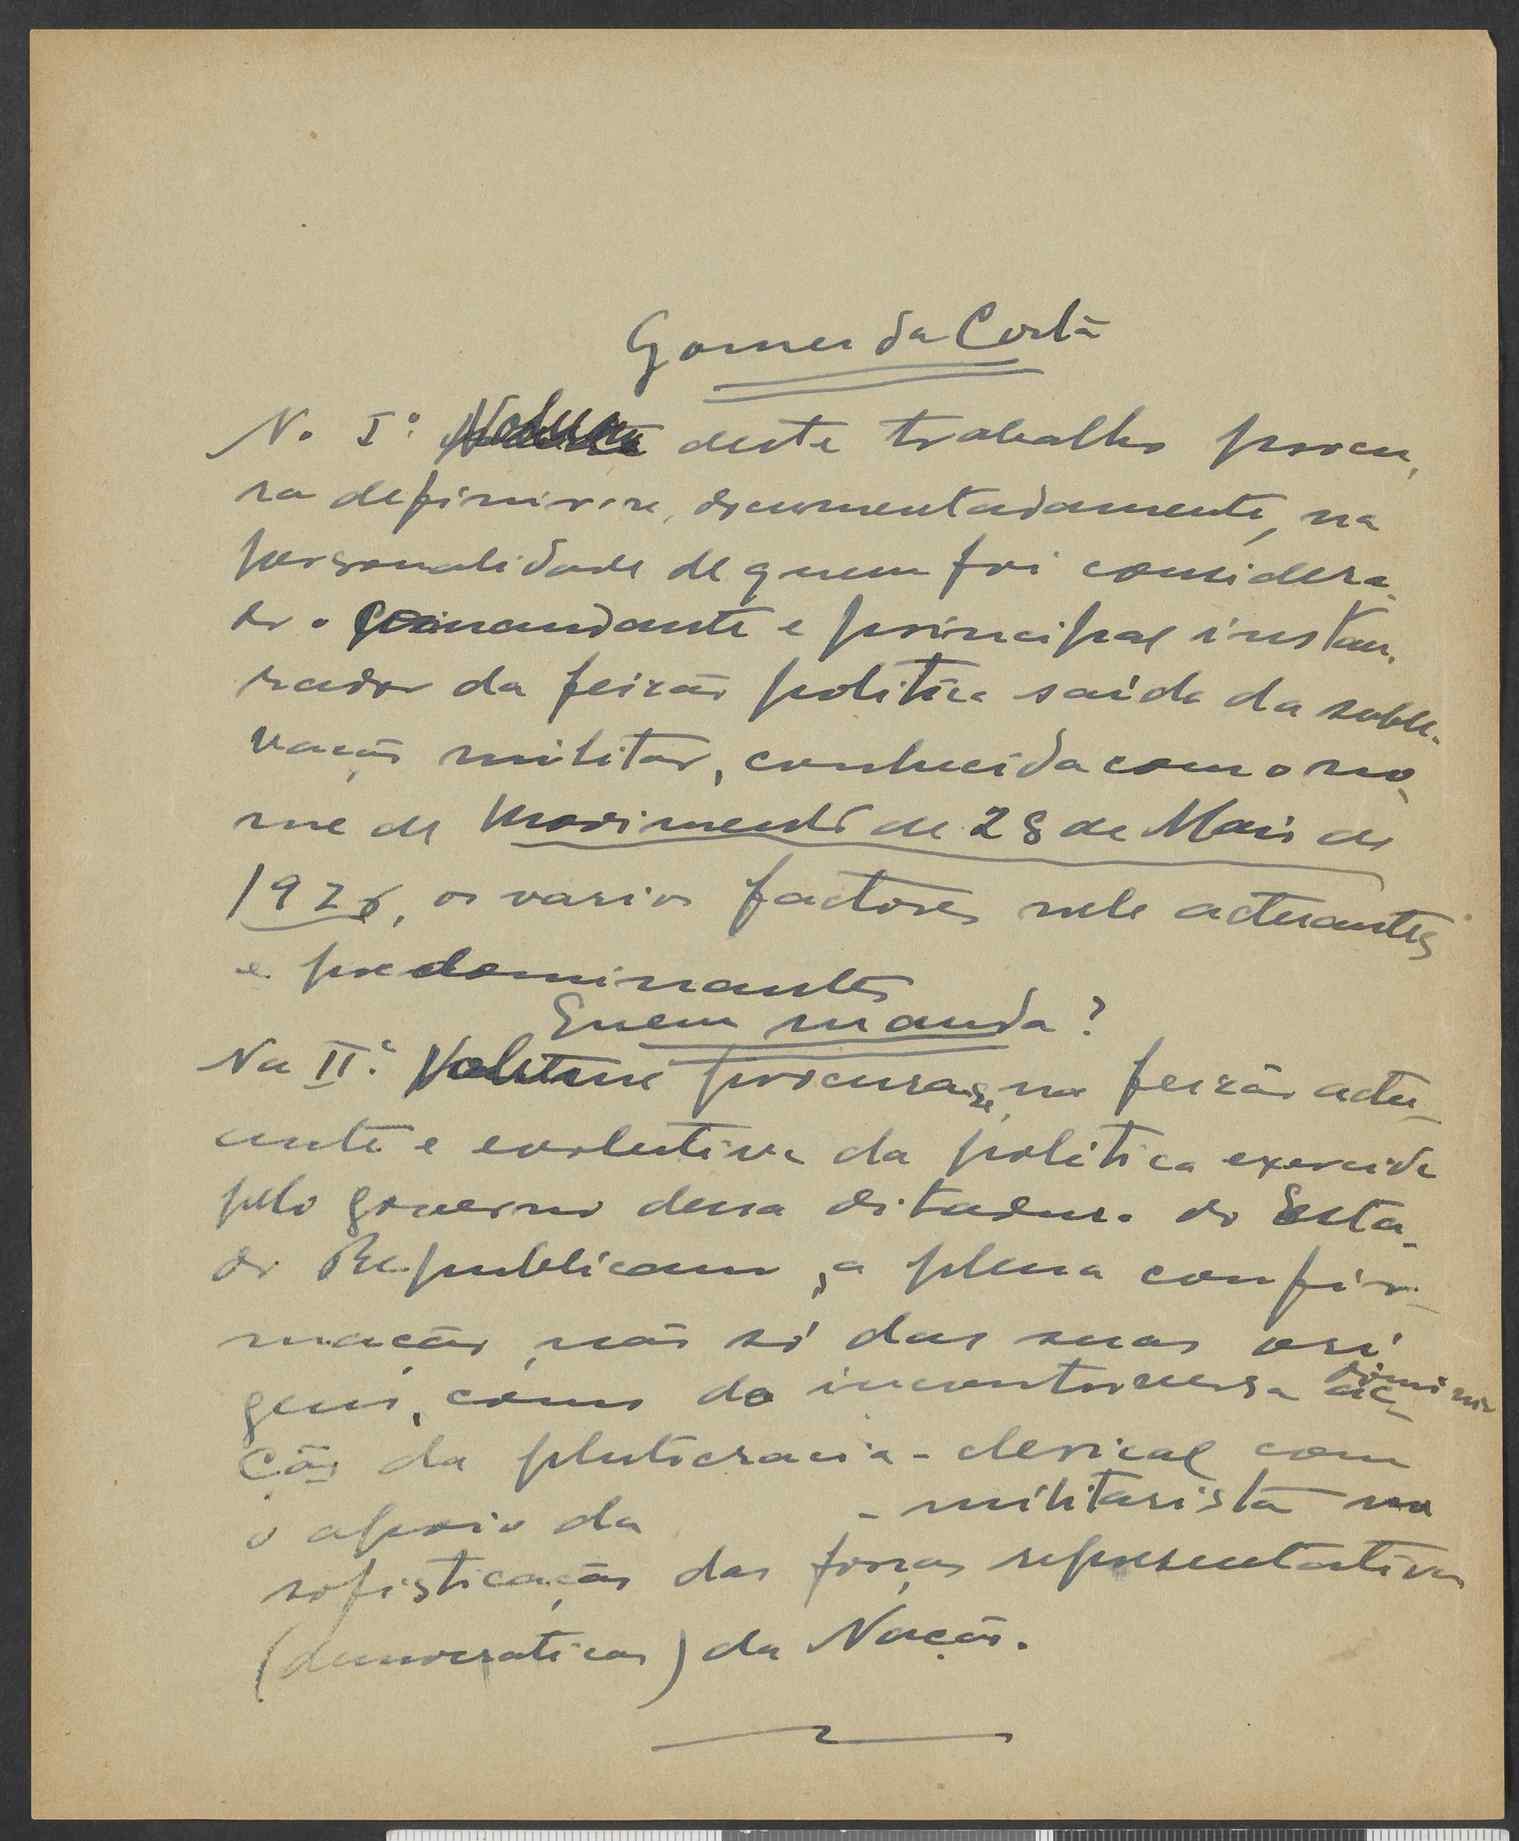 Gomes da Costa
No Iº Volume deste trabalho procu-
ra definir-se, documentadamente, na
personalidade de quem foi considera-
do o comandante e principal instau-
rador da feição politica saída da suble-
vação militar, conhecida com o no-
me de Movimento de 28 de Maio de
1926, os varios factores nele actuantes
e predominantes
Quem manda?
No IIº Volume procura-se, na feição actu-
ante e evolutiva da politica exercida
pelo governo dessa ditadura do Esta-
do Republicano, a plena confir-
mação, não só das suas ori
gens, como da incontroversa domina
ção da plutocracia-clerical com
o apoio da - militarista na
sofisticação das forças representativas
(democraticas) da Nação.